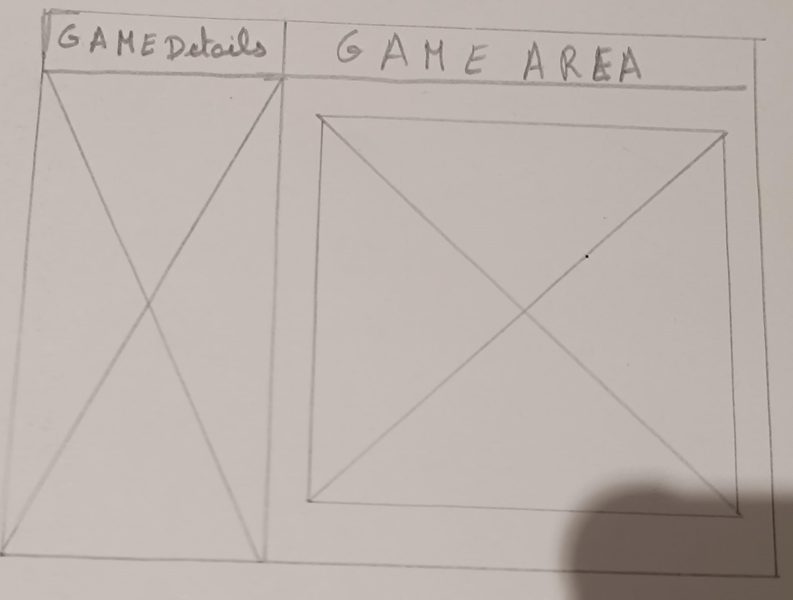 GAME Details
GAME AREA